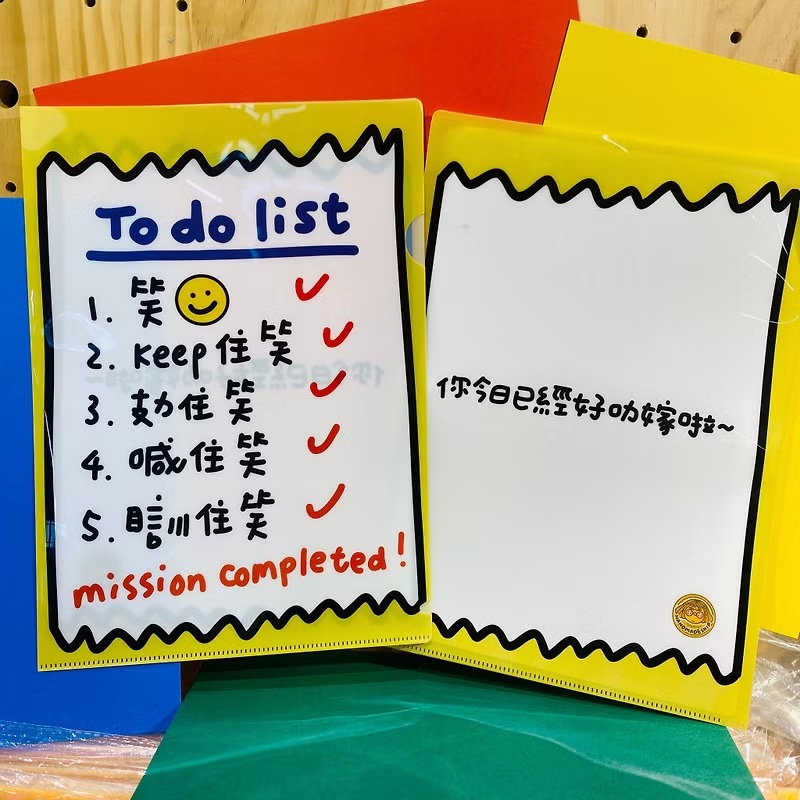 To do list
1. 笑 ✓
2. Keep住笑 ✓
3. 攰住笑 ✓
4. 喊住笑 ✓
5. 瞓住笑 ✓
mission completed!
你今日已經好叻嫁啦~